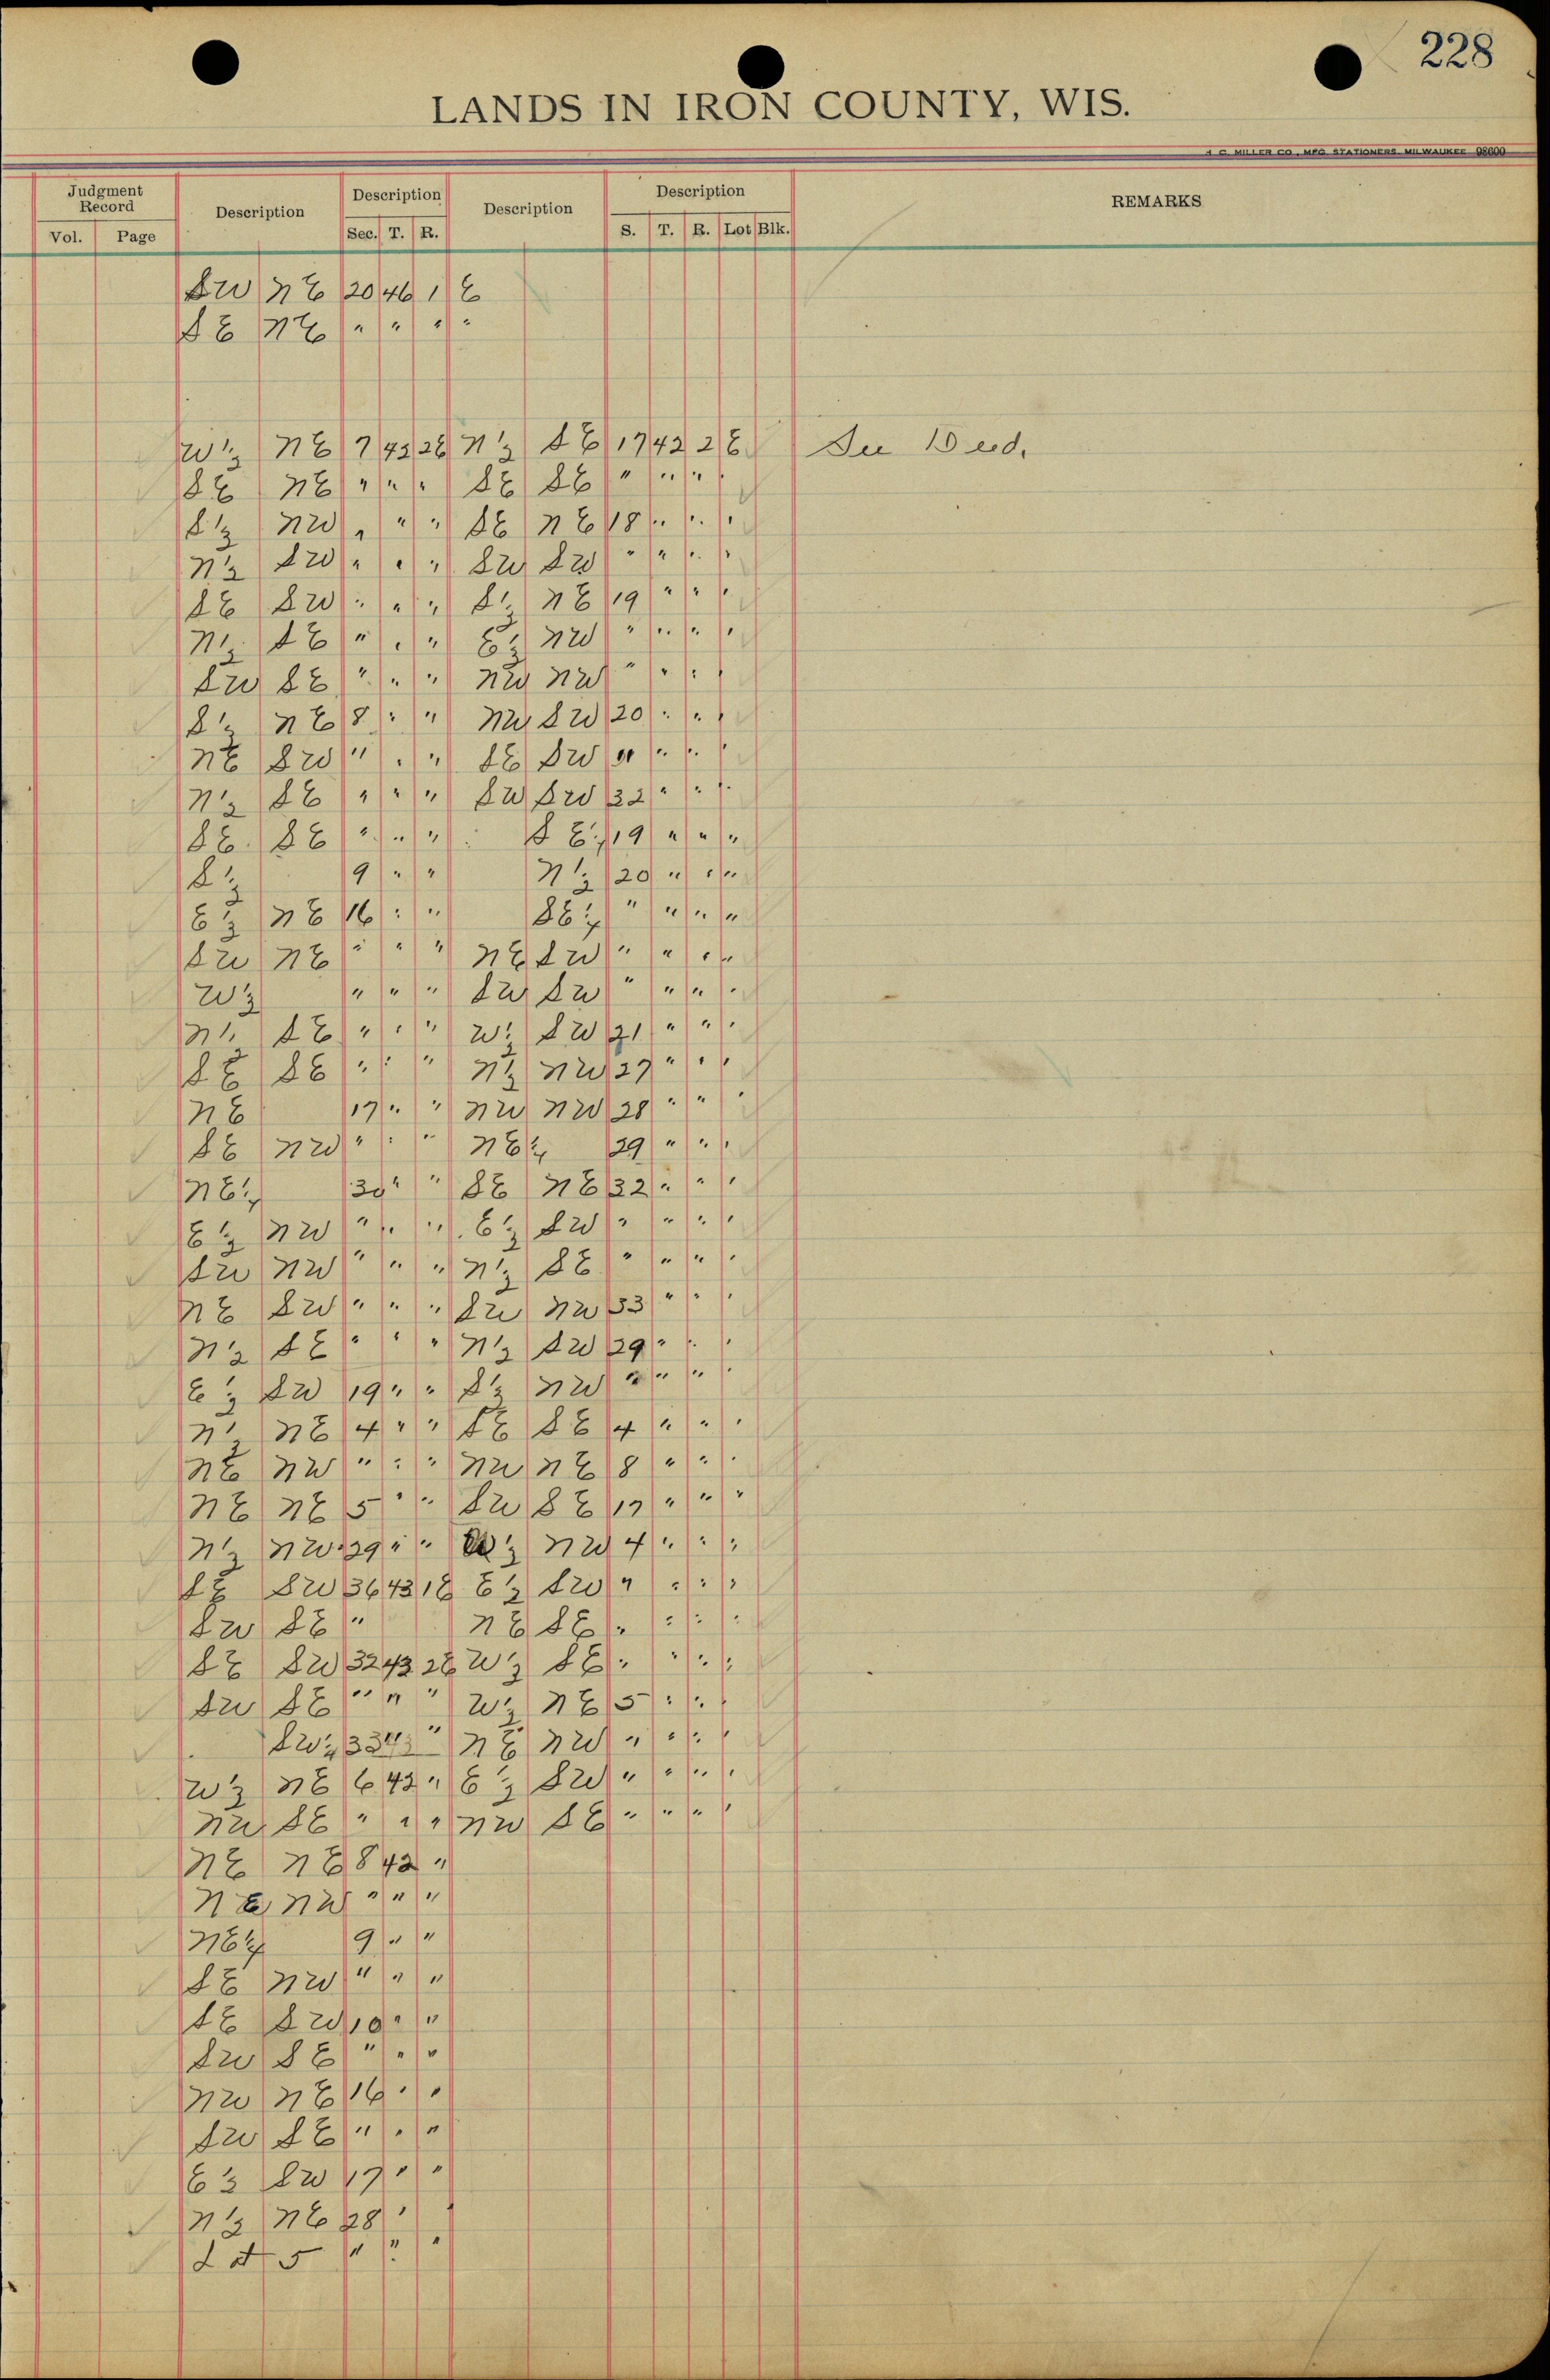 228
LANDS IN IRON COUNTY, WIS.
H. C. MILLER CO., MFG. STATIONERS, MILWAUKEE 98600
Judgment Record Description Description Description Description REMARKS
Vol. Page Sec. T. R. S. T. R. Lot Blk.
SW NE 20 46 1 E
SE NE " " " "
W½ NE 7 42 2E N½ SE 17 42 2 E See Deed.
SE NE " " " SE SE " " "
S½ NW " " " SE NE 18 " " "
N½ SW " " " SW SW " " " "
SE SW " " " S½ NE 19 " " "
N½ SE " " " E½ NW " " " "
SW SE " " " NW NW " " " "
S½ NE 8 " " NW SW 20 " " "
NE SW " " " SE SW " " " "
N½ SE " " " SW SW 32 " " "
SE SE " " " SE¼ 19 " " "
S½ 9 " " N½ 20 " " "
E½ NE 16 " " SE¼ " " " "
SW NE " " " NE SW " " " "
W½ " " " SW SW " " " "
N½ SE " " " W½ SW 21 " " "
SE SE " " " N½ NW 27 " " "
NE 17 " " NW NW 28 " " "
SE NW " " " NE¼ 29 " " "
NE¼ 30 " " SE NE 32 " " "
E½ NW " " " E½ SW " " " "
SW NW " " " N½ SE " " " "
NE SW " " " SW NW 33 " " "
N½ SE " " " N½ SW 29 " " "
E½ SW 19 " " S½ NW " " " "
N½ NE 4 " " SE SE 4 " " "
NE NW " " " NW NE 8 " " "
NE NE 5 " " SW SE 17 " " "
N½ NW 29 " " W½ NW 4 " " "
SE SW 36 43 1E E½ SW " " " "
SW SE " NE SE " " " "
SE SW 32 43 2E W½ SE " " " "
SW SE " " " W½ NE 5 " " "
SW¼ 33 43 " NE NW " " " "
W½ NE 6 42 " E½ SW " " " "
NW SE " " " NW SE " " " "
NE NE 8 42 "
NE NW " " "
NE¼ 9 " "
SE NW " " "
SE SW 10 " "
SW SE " " "
NW NE 16 " "
SW SE " " "
E½ SW 17 " "
N½ NE 28 " "
Lot 5 " " "